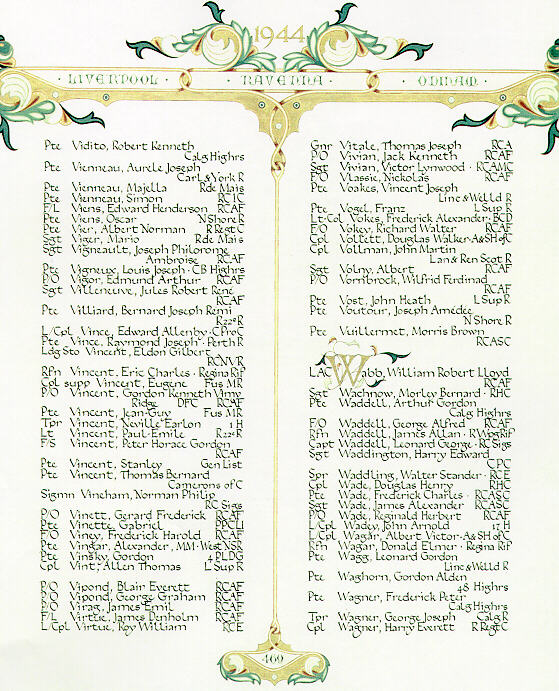 1944
· LIVERPOOL · RAVENNA · ODINAM ·
Pte Vidito, Robert Kenneth
Calg Highrs
Pte Vienneau, Aurele Joseph
Carl & York R
Pte Vienneau, Majella Rde Mais
Pte Vienneau, Simon RCIC
F/L Viens, Edward Henderson RCAF
Pte Viens, Oscar N Shore R
Pte Vier, Albert Norman R Regt C
Sgt Viger, Mario Rde Mais
Sgt Vigneault, Joseph Philorome
Ambroise RCAF
Pte Vigneux, Louis Joseph · CB Highrs
P/O Vigor, Edmund Arthur RCAF
Sgt Villeneuve, Jules Robert René
RCAF
Pte Villiard, Bernard Joseph Remi
R22eR
L/Cpl Vince, Edward Allenby · CProC
Pte Vince, Raymond Joseph · Perth R
Ldg Sto Vincent, Eldon Gilbert
RCNVR
Rfn Vincent, Eric Charles · Regina Rif
Cpl supp Vincent, Eugene Fus MR
P/O Vincent, Gordon Kenneth Vimy
Ridge DFC RCAF
Pte Vincent, Jean-Guy Fus MR
Tpr Vincent, Neville Earlon 1 H
Lt Vincent, Paul-Emile R22eR
F/S Vincent, Peter Horace Gordon
RCAF
Pte Vincent, Stanley Gen List
Pte Vincent, Thomas Bernard
Camerons of C
Sigmn Vincham, Norman Philip
RC Sigs
P/O Vinett, Gerard Frederick RCAF
Pte Vinette, Gabriel PPCLI
F/O Viney, Frederick Harold RCAF
Pte Vingar, Alexander, MM · West NSR
Pte Vinsky, Gordon 4 PLDG
Cpl Vint, Allen Thomas L Sup R
P/O Vipond, Blair Everett RCAF
P/O Vipond, George Graham RCAF
P/O Virag, James Emil RCAF
F/L Virtue, James Denholm RCAF
L/Cpl Virtue, Roy William RCE
Gnr Vitale, Thomas Joseph RCA
P/O Vivian, Jack Kenneth RCAF
Sgt Vivian, Victor Lynwood · RCAMC
P/O Vlassie, Nickolas RCAF
Pte Voakes, Vincent Joseph
Linc & Welld R
Pte Vogel, Franz L Sup R
Lt-Col Vokes, Frederick Alexander · BCD
F/O Vokey, Richard Walter RCAF
Cpl Volfett, Douglas Walker · A & SH of C
Cpl Vollman, John Martin
Lan & Ren Scot R
Sgt Volny, Albert RCAF
P/O Vornbrock, Wilfrid Ferdinad
RCAF
Pte Vost, John Heath L Sup R
Pte Voutour, Joseph Amédée
N Shore R
Pte Vuillermet, Morris Brown
RCASC
LAC Wabb, William Robert Lloyd
RCAF
Sgt Wachnow, Morley Bernard · RHC
Pte Waddell, Arthur Gordon
Calg Highrs
F/O Waddell, George Alfred RCAF
Rfn Waddell, James Allan · R Wpg Rif
Capt Waddell, Leonard George · RC Sigs
Sgt Waddington, Harry Edward
CPC
Spr Waddling, Walter Stander · RCE
Cpl Wade, Douglas Henry RHC
Pte Wade, Frederick Charles · RCASC
Sgt Wade, James Alexander RCASC
P/O Wade, Reginald Herbert RCAF
L/Cpl Wadey, John Arnold 17 H
L/Cpl Wagar, Albert Victor · A & SH of C
Rfn Wagar, Donald Elmer · Regina Rif
Pte Wagg, Leonard Gordon
Linc & Welld R
Pte Waghorn, Gordon Alden
48 Highrs
Pte Wagner, Frederick Peter
Calg Highrs
Tpr Wagner, George Joseph Calg R
Cpl Wagner, Harry Everett R Regt C
469